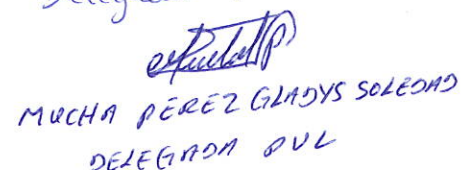 MUCHA PÉREZ GLADYS SOLEDAD
DELEGADA PVL